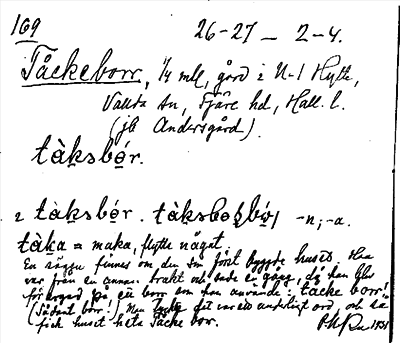 169
26-27 — 2-4.
Tåckeborr, 1/4 mtl, gård i N-1 Hytte,
Vallda sn, Fjäre hd, Hall. l.
(jfr Andersgård).
tàksbór.
2 tàksbór. tàksbo bó) -n; -a.
tàka = maka, flytta något.
En sägen finnes om den som först byggde huset. Han
var från en annan trakt och sade en gång, då han blev
förargad på ett borr som han använde: tåcke borr!
(Sådant borr!) Men tåcke det var ett underligt ord och så
fick huset heta Tåcke borr.
1931